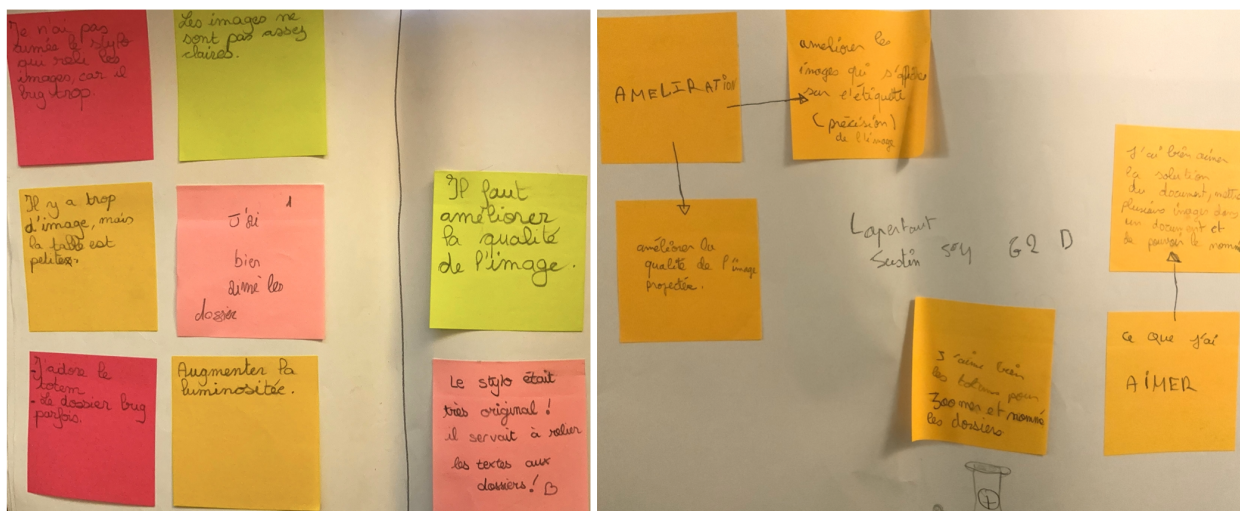 Je n'ai pas
aimée le stylo
qui relie les
images, car il
bug trop.
Les images ne
sont pas assez
claires.
Il y a trop
d'image, mais
la table est
petites.
1
J'ai
bien
aimé les
dossier
- J'adore le
totem
- Le dossier bug
parfois.
Augmenter la
luminositée.
Il faut
améliorer
la qualité
de l'image.
Le stylo était
très original !
il servait à relier
les textes aux
dossiers !
AMELIRATION
améliorer les
images qui s'affiche
sur l'étiquette
(précision)
de l'image
améliorer la
qualité de l'image
projectée.
Lapertaut
Justin 504 G2 D
J'ai bien aimer
la solution
du document, mettre
plusieurs images dans
un document et
de pouvoir le nommé
ce que j'ai
AIMER
J'aime bien
les totems pour
zoomer et nommé
les dossiers